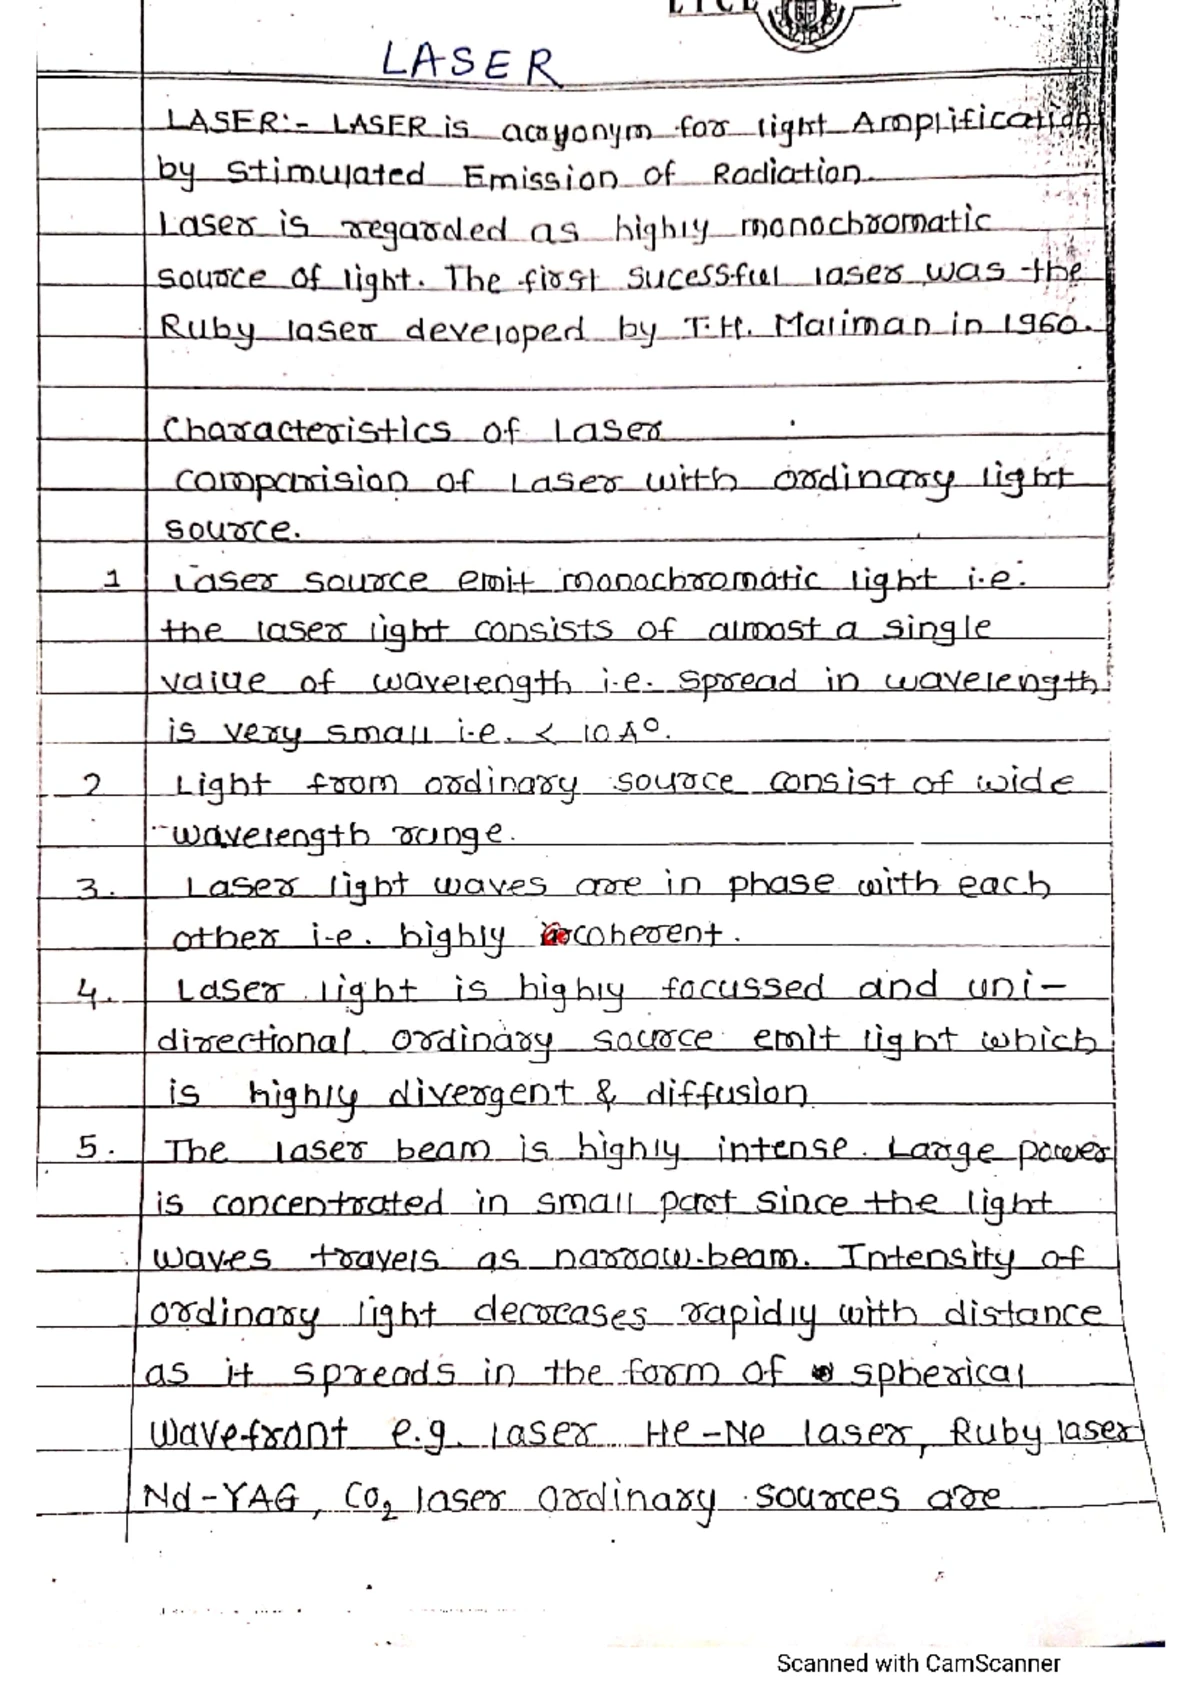 LASER
LASER:- LASER is acryonym for light Amplification
by Stimulated Emission of Radiation.
Laser is regarded as highly monochromatic
source of light. The first sucessful laser was the
Ruby laser developed by T.H. Maliman in 1960.
Characteristics of Laser
comparision of Laser with ordinary light
source.
1 Laser source emit monochromatic light i.e.
the laser light consists of almost a single
value of wavelength i.e. spread in wavelength
is very small i.e. < 10 A°.
2 Light from ordinary source consist of wide
wavelength range.
3. Laser light waves are in phase with each
other i.e. highly coherent.
4. Laser light is highly focussed and uni-
directional. ordinary source emit light which
is highly divergent & diffusion
5. The laser beam is highly intense. Large power
is concentrated in small part since the light
waves travels as narrow beam. Intensity of
ordinary light decreases rapidly with distance
as it spreads in the form of spherical
wavefront e.g. laser He-Ne laser, Ruby laser
Nd-YAG, CO2 laser ordinary sources are
Scanned with CamScanner